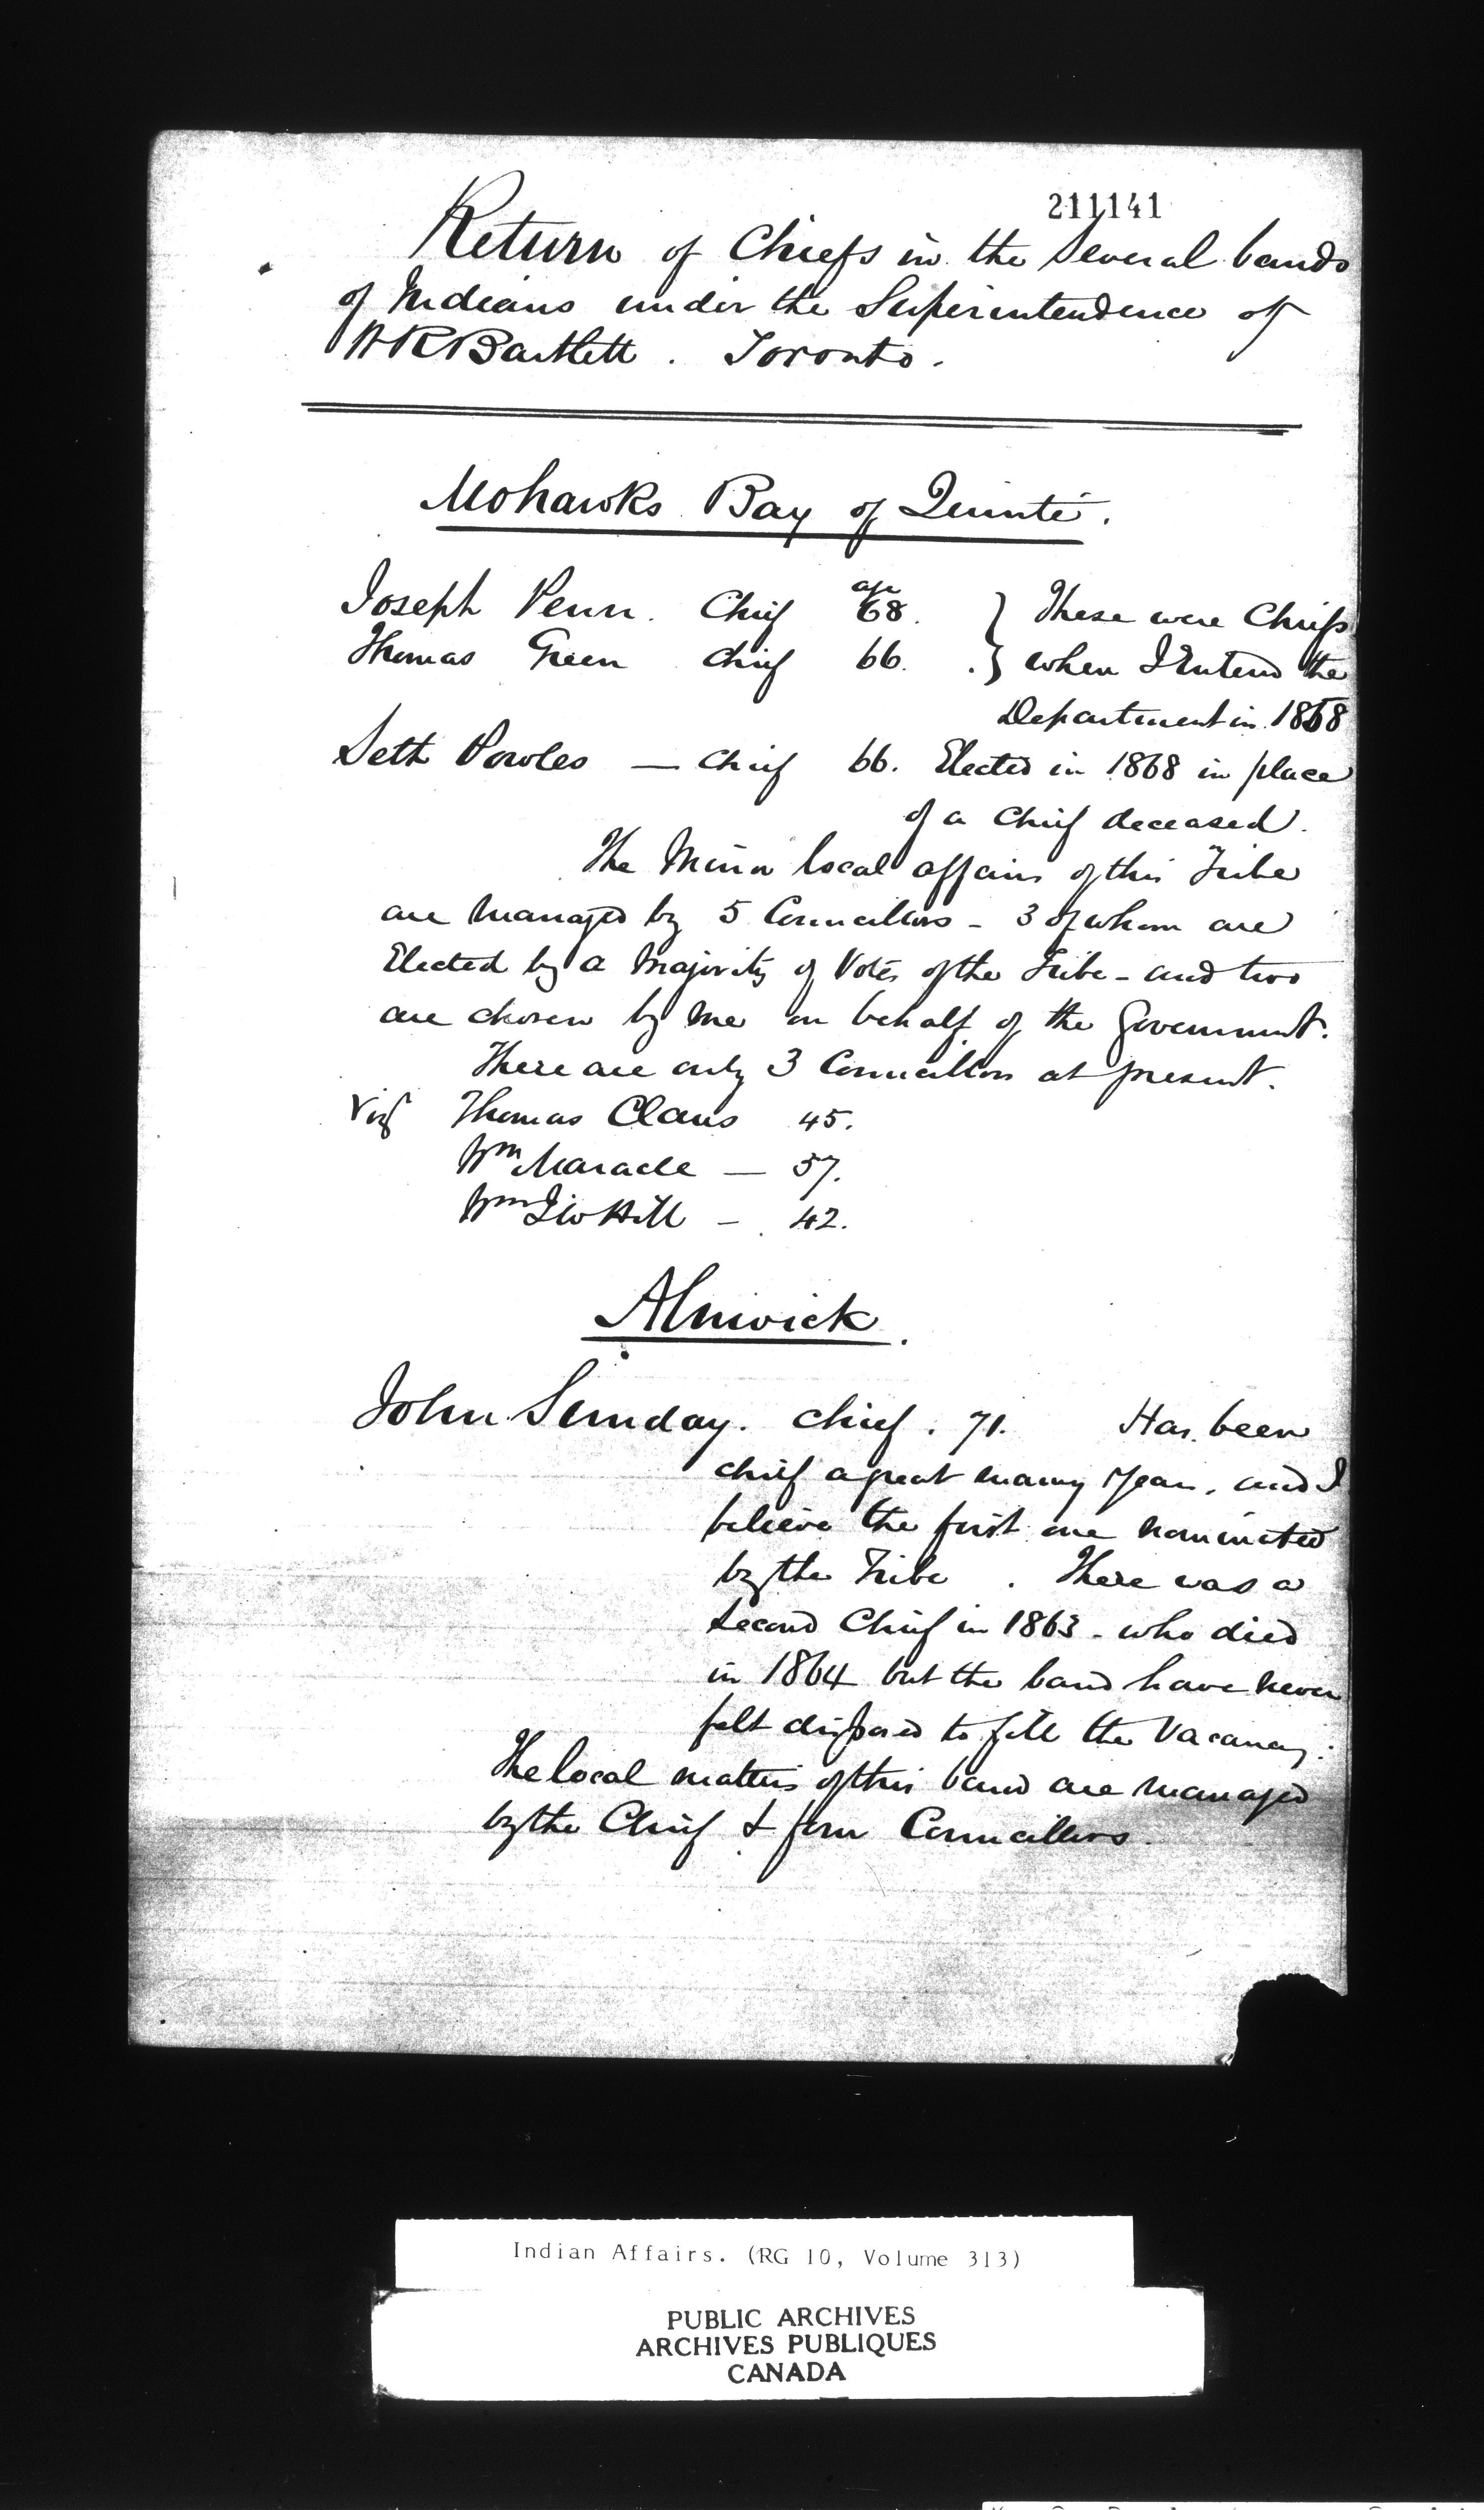 211141
Return of Chiefs in the several bands
of Indians under the Superintendence of
W R Bartlett . Toronto .
Mohawks Bay of Quinté .
age
Joseph Penn . Chief 68 . } These were Chiefs
Thomas Green Chief 66 . } when I Entered the
Department in 1858
Seth Powles — Chief 66 . Elected in 1868 in place
of a Chief deceased .
The Minor local affairs of this Tribe
are managed by 5 Councillors - 3 of whom are
Elected by a Majority of Votes of the Tribe - and two
are chosen by me on behalf of the Government .
There are only 3 Councillors at present .
Viz Thomas Claus 45 .
Wm Maracle — 57 .
Wm Hill — 42 .
Alnwick .
John Sunday . Chief . 71 . Has been
chief a great many years , and I
believe the first one nominated
by the Tribe . There was a
second Chief in 1863 - who died
in 1864 but the band have never
felt disposed to fill the Vacancy .
The local matters of this band are managed
by the Chief & four Councillors .
Indian Affairs. (RG 10, Volume 313)
PUBLIC ARCHIVES
ARCHIVES PUBLIQUES
CANADA